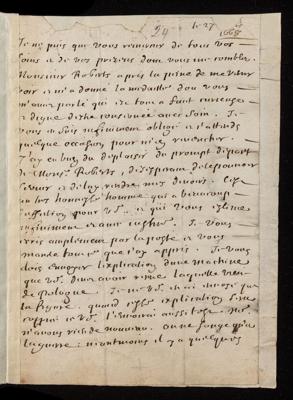 24 le 27
1668
Je ne puis que vous remercier de tous vos
soins et de vos presens dont vous me comblez.
Monsieur Roberts après la peine de me venir
voir et m'a donné la medaille dont vous
m'avez parlé qui est tout a fait curieuse
et digne d'estre conservée avec soin. Je
vous en suis infiniment obligé et j'attends
quelque occasion pour m'en revencher.
J'ay eu bien du deplaisir du prompt depart
de Mons. Roberts, desesperant de le pouvoir
servir et de luy rendre mes devoirs. C'est
un tres honneste homme qui a beaucoup
d'affection pour vous et qui vous estime
infiniment Je vous
escris amplement par la poste et vous
mande tout ce que j'ay appris. Je vous
dois envoyer l'explication d'une machine
que vous avez veue laquelle vient
de Pologne. Je
la figure. quand l'explication sera
l'envoirai aussi tost.
n'avons rien de nouveau. on ne songe qu'a
la guerre: neantmoins il y a quelques